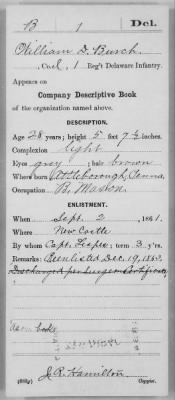 B 1 Del.
William D. Burch
Co. 1 Reg't Delaware Infantry.
Appears on
Company Descriptive Book
of the organization named above.
DESCRIPTION.
Age 28 years; height 5 feet 7½ inches.
Complexion light
Eyes grey; hair brown
Where born Attleborough, Penna.
Occupation B. Mason
ENLISTMENT.
When Sept. 2, 1861.
Where New Castle
By whom Capt. ; term 3 y'rs.
Remarks: Reenlisted Dec. 19, 1863
Discharged per Surgeon Certificate,
J. R. Hamilton
Copyist.